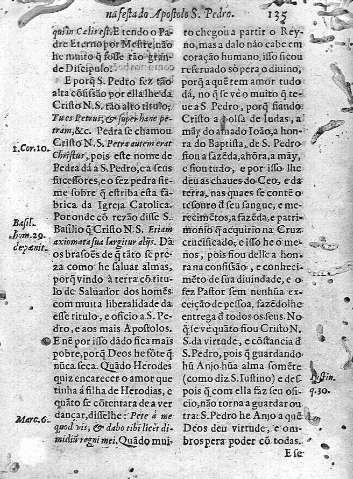 na festa do Apostolo S. Pedro. 135
qui in Cælis est. E tendo o Pa-
dre Eterno por Mestre, não
he muito q̃ fosse tão gran-
de Discipulo.
E porq̃ S. Pedro fez tão
alta cõfissão por ella lhe da
Cristo N. S. tão alto titulo,
Tu es Petrus, & super hanc pe-
tram, &c. Pedra se chamou
Cristo N. S. Petra autem erat
1. Cor. 10.
Christus, pois este nome de
Pedra dá a S. Pedro, e a seus
sucessores, e o fez pedra fir-
me sobre q̃ estriba esta fá-
brica da Igreja Catolica.
Por onde cõ rezão disse S.
Basil. hom. 29. de pænit.
Basilio q̃ Cristo N. S. Etiam
axiomata sua largitur alijs. Dá
os brasões de q̃ tãto se pre-
za como he saluar almas,
porq̃ vindo à terra cõ titu-
lo de Saluador dos homẽs
com muita liberalidade da
esse titulo, e oficio a S. Pe-
dro, e aos mais Apostolos.
E nẽ por isso dádo fica mais
pobre, porq̃ Deos he fõte q̃
nũca seca. Quãdo Herodes
quiz encarecer o amor que
tinha á filha de Herodias, e
quãto se cõtentara de a ver
Marc. 6.
dançar, disselhe: Pete á me
quod vis, & dabo tibi licet di-
midiũ regni mei. Quãdo mui-
to chegou a partir o Rey-
no, mas a dalo não cabe em
coração humano, isso ficou
reseruado só pera o diuino,
porq̃ a quẽ tem amor tudo
dá, no q̃ se vé o muito q̃ te-
ue a S. Pedro, porq̃ fiando
Cristo a bolsa de Iudas, a
mãy do amado Ioão, a hon-
ra do Baptista, de S. Pedro
fiou a fazẽda, a hõra, a mãy,
e fiou tudo, e por isso lhe
deu as chaues do Ceo, e da
terra, nas quaes se contẽ o
tesouro d seu sangue, e me-
recimẽtos, a fazẽda, e patri-
monio q̃ acquirio na Cruz
crucificado; e isso he o me-
nos, pois fiou delle a hon-
ra na confissão, e conheci-
mẽto de sua diuindade, e o
fez Pastor sem nenhũa ex-
ceição de pessoa, fazẽdolhe
entrega d todos os seus. No
q̃ se vé quãto fiou Cristo N.
S. da virtude, e cõstancia d
S. Pedro, pois q̃ guardando
hũ Anjo hũa alma somẽte
Iustin. q. 30.
(como diz S. Iustino) e des-
pois q̃ com ella faz seu ofi-
cio, não torna a guardar ou-
tra: S. Pedro he Anjo a quẽ
Deos deu virtude, e om-
bros pera poder cõ todas.
E se